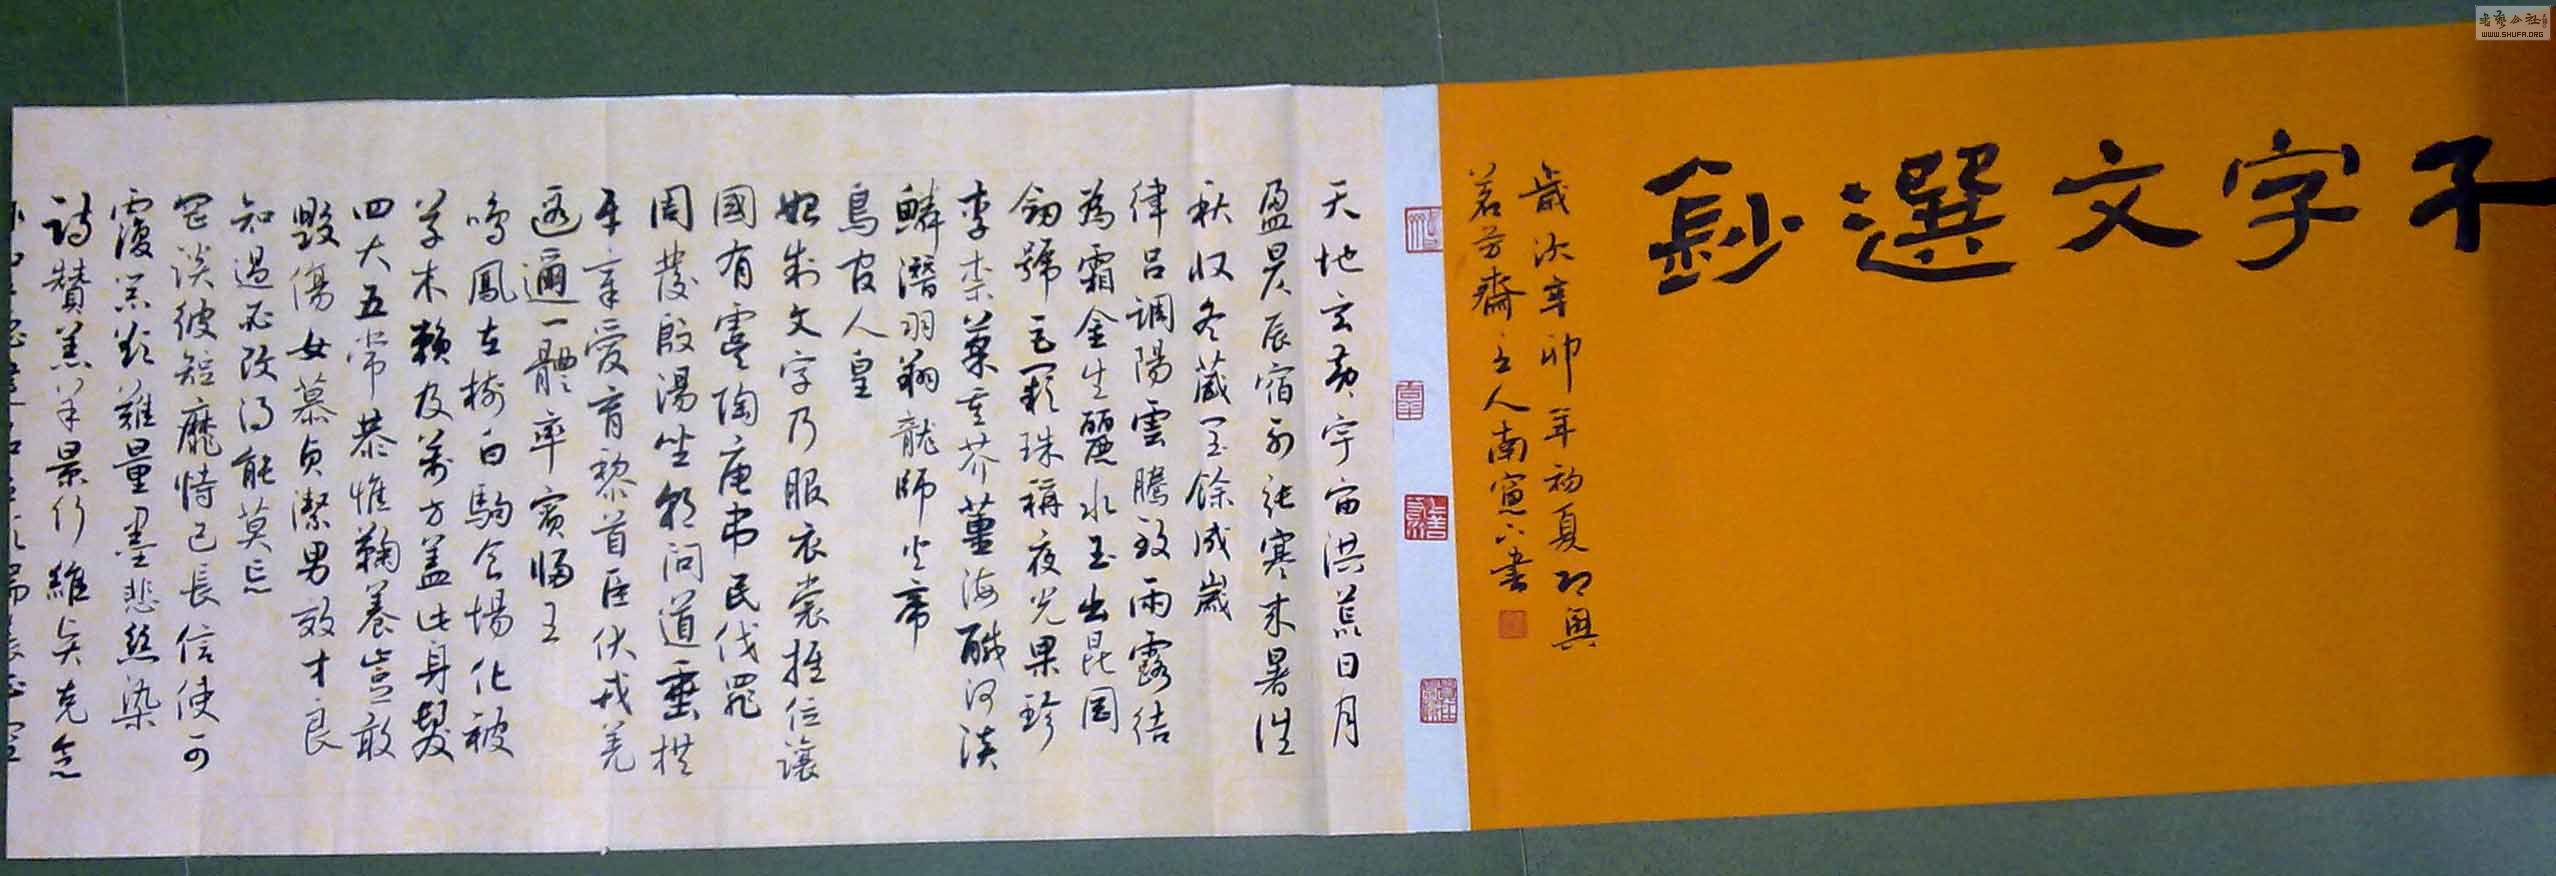 千字文選鈔
歲次辛卯年初夏即興
茗芳齋主人南窗六書
天地玄黃宇宙洪荒日月
盈昃辰宿列張寒來暑往
秋收冬藏閏餘成歲
律呂調陽雲騰致雨露結
為霜金生麗水玉出昆岡
劍號巨闕珠稱夜光果珍
李柰菜重芥薑海鹹河淡
鱗潛羽翔龍師火帝
鳥官人皇
始制文字乃服衣裳推位讓
國有虞陶唐弔民伐罪
周發殷湯坐朝問道垂拱
平章愛育黎首臣伏戎羌
遐邇一體率賓歸王
鳴鳳在樹白駒食場化被
草木賴及萬方蓋此身髮
四大五常恭惟鞠養豈敢
毀傷女慕貞潔男效才良
知過必改得能莫忘
罔談彼短靡恃己長信使可
覆器欲難量墨悲絲染
詩贊羔羊景行維賢克念
書藝公社
WWW.SHUFA.ORG